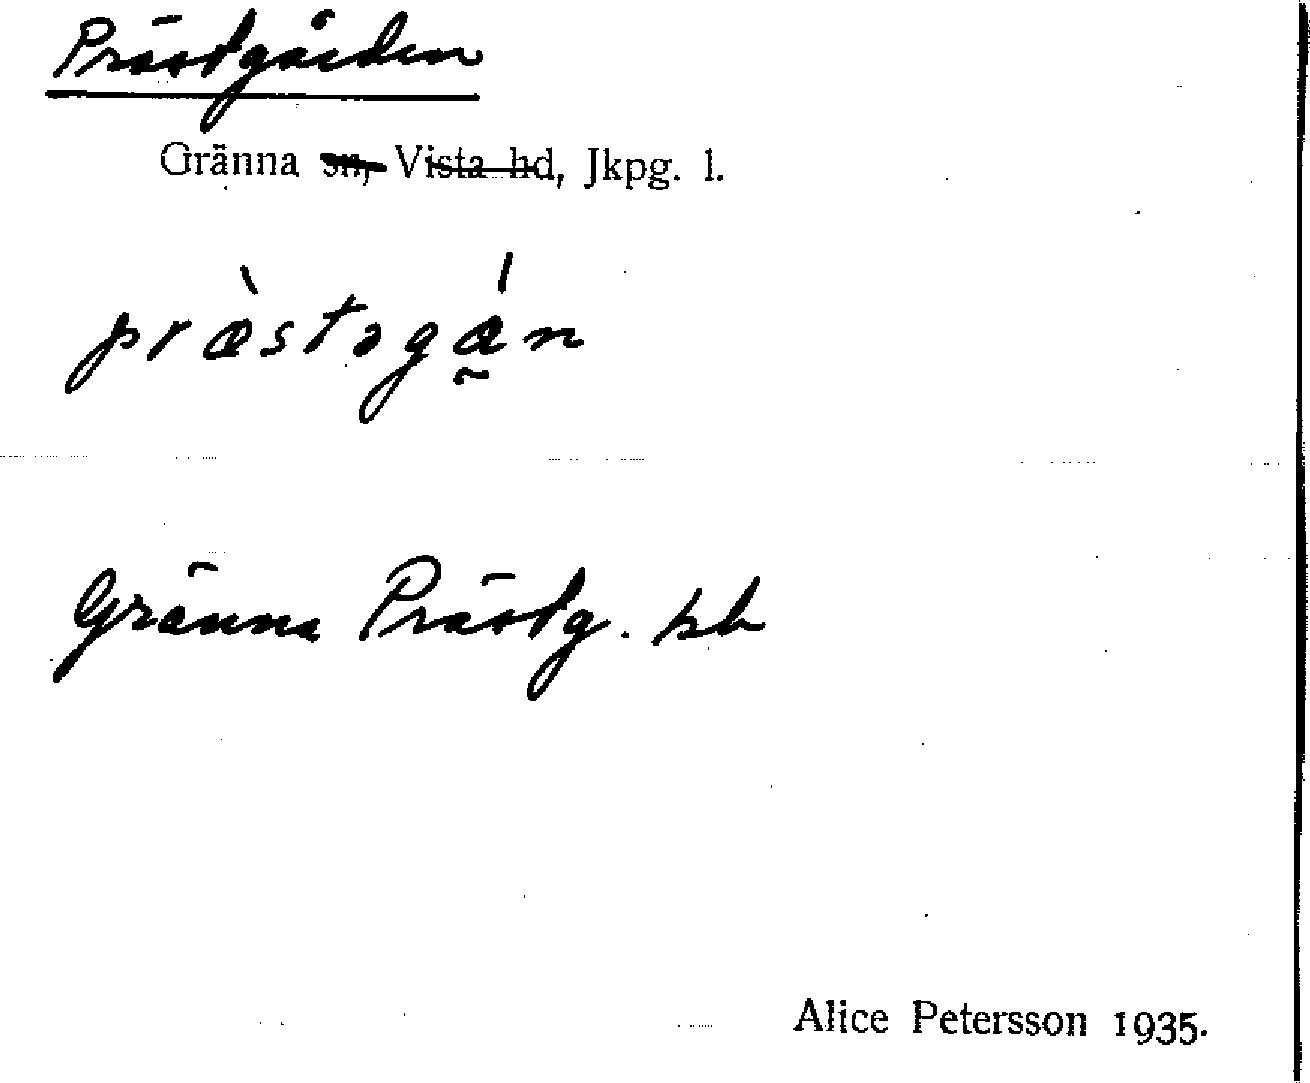 Prästgården
Gränna sn, Vista hd, Jkpg. l.
præ̀stogá̰n
Gränna Prästg. kb
Alice Petersson 1935.